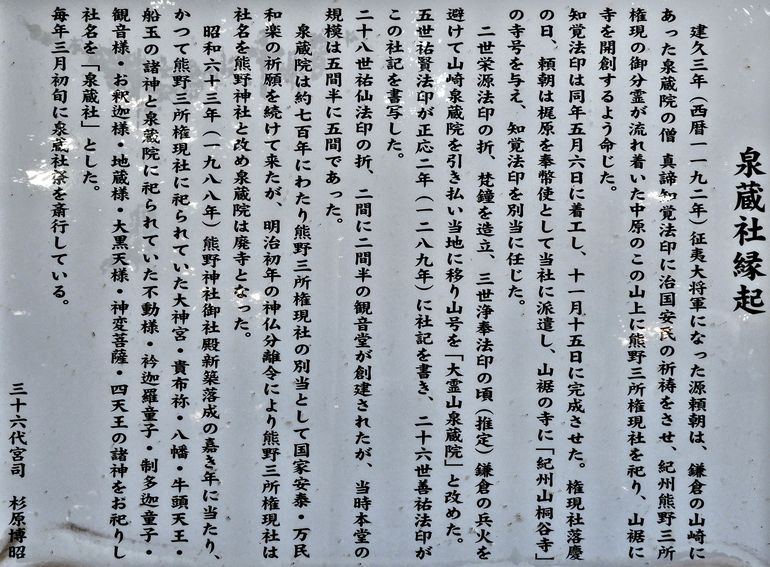 泉蔵社縁起
建久三年（西暦一一九二年）征夷大将軍になった源頼朝は、鎌倉の山崎に
あった泉蔵院の僧 真諦知覚法印に治国安民の祈祷をさせ、紀州熊野三所
権現の御分霊が流れ着いた中原のこの山上に熊野三所権現社を祀り、山裾に
寺を開創するよう命じた。
知覚法印は同年五月六日に着工し、十一月十五日に完成させた。権現社落慶
の日、頼朝は梶原を奉幣使として当社に派遣し、山裾の寺に「紀州山桐谷寺」
の寺号を与え、知覚法印を別当に任じた。
二世栄源法印の折、梵鐘を造立、三世浄奉法印の頃（推定）鎌倉の兵火を
避けて山崎泉蔵院を引き払い当地に移り山号を「大霊山泉蔵院」と改めた。
五世祐賢法印が正応二年（一二八九年）に社記を書き、二十六世善祐法印が
この社記を書写した。
二十八世祐仙法印の折、二間に二間半の観音堂が創建されたが、当時本堂の
規模は五間半に五間であった。
泉蔵院は約七百年にわたり熊野三所権現社の別当として国家安泰・万民
和楽の祈願を続けて来たが 明治初年の神仏分離令により熊野三所権現社は
社名を熊野神社と改め泉蔵院は廃寺となった。
昭和六十三年（一九八八年）熊野神社御社殿新築落成の嘉き年に当たり、
かつて熊野三所権現社に祀られていた大神宮・貴布祢・八幡・牛頭天王・
船玉の諸神と泉蔵院に祀られていた不動様・衿伽羅童子・制多迦童子・
観音様・お釈迦様・地蔵様・大黒天様・神変菩薩・四天王の諸神をお祀りし
社名を「泉蔵社」とした。
毎年三月初旬に泉蔵社祭を斎行している。
三十六代宮司 杉原博昭